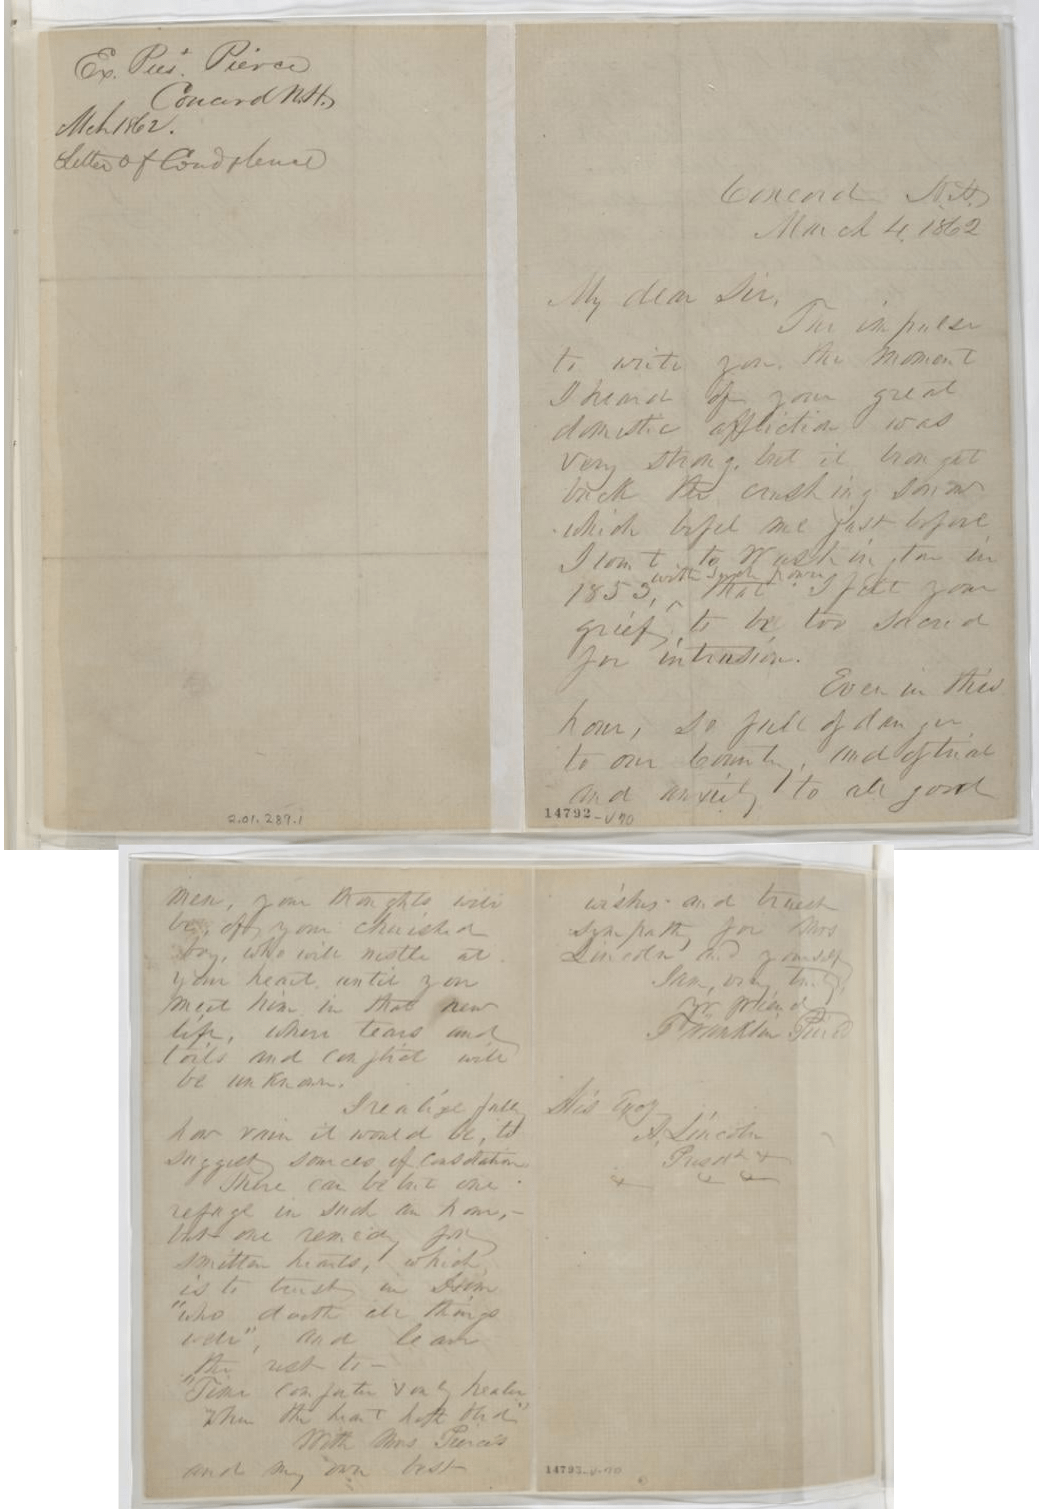 Ex. Pres't. Pierce
Concord N.H.
Mch. 1862.
Letter of Condolence
2.01.289.1
Concord N.H.
March 4, 1862
My dear Sir,
The impulse
to write you, the moment
I heard of your great
domestic affliction was
very strong, but it brought
back the crushing sorrow
which befel me just before
I went to Washington in
with such power
1853, ^ that I felt your
grief, to be too sacred
for intrusion.
Even in this
hour, so full of danger
to our Country, and of trial
and anxiety to all good
14792-V70
men, your thoughts will
be, of your cherished
boy, who will nestle at
your heart, until you
meet him in that new
life, where tears and
toils and conflict will
be unknown.
I realize fully
how vain it would be, to
suggest sources of consolation.
There can be but one
refuge in such an hour,-
but one remedy for
smitten hearts, which,
is to trust in Him
"who doeth all things
well", and leave
the rest to -
"Time comforter & only healer
When the heart hath bled"
With Mrs Pierce's
and my own best
wishes- and truest
sympathy for Mrs
Lincoln and yourself
I am, very truly,
yr. friend
Franklin Pierce
His Excy
A. Lincoln
Presdt